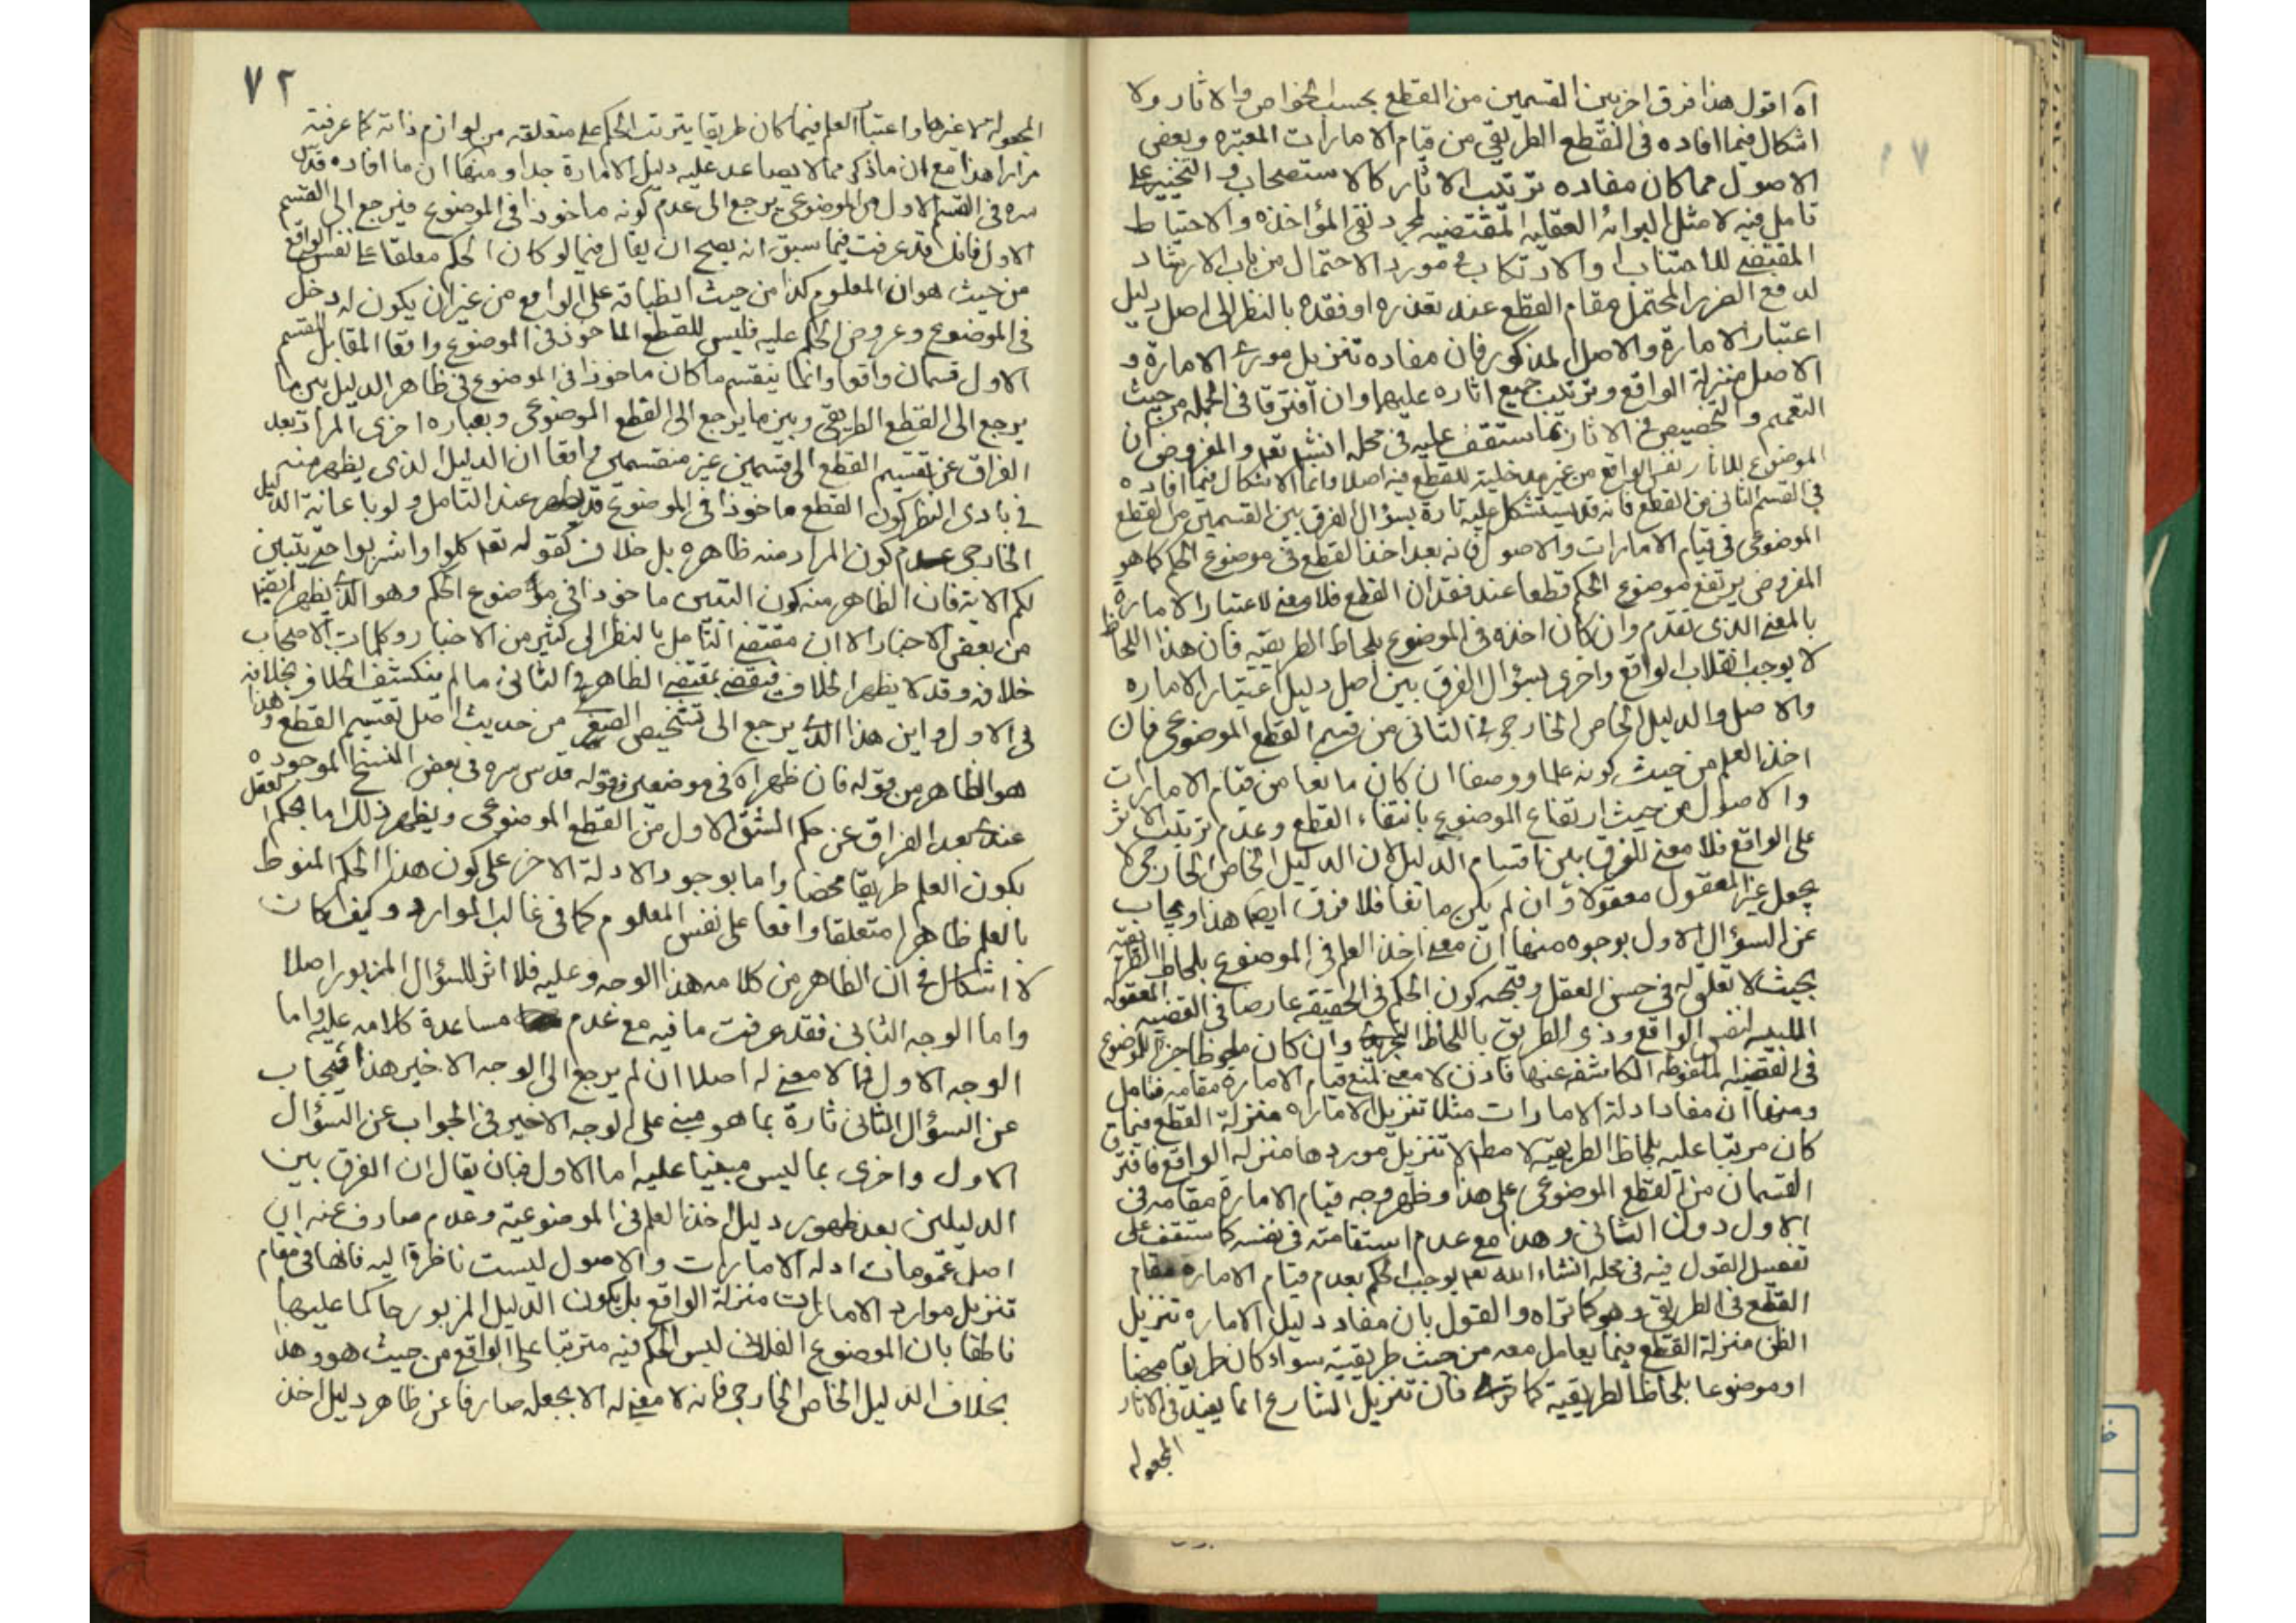 آه اقول هذا فرق اخر بين القسمين من القطع بحسب الخواص والاثار ولا
اشكال فيما افاده فى القطع الطريقى من قيام الامارات المعتبره وبعض
الاصول مما كان مفاده ترتيب الاثار كالاستصحاب و التخيير على
تامل فيه لا مثل البرائه العقليه المقتضيه لمجرد نفى المؤاخذه والاحتياط
المقتضى للاجتناب او الارتكاب فى مورد الاحتمال من باب الارشاد
لدفع الضرر المحتمل مقام القطع عند تعذره او فقده بالنظر الى اصل دليل
اعتبار الامارة والاصل المذكور فان مفاده تنزيل مورد الامارة و
الاصل منزلة الواقع وترتيب جميع اثاره عليهما وان افترقا فى الجمله من حيث
التعميم والتخصيص فى الاثار كما ستقف عليه فى محله انشاء تعم والمفروض ان
الموضوع للاثار نفس الواقع من غير مدخلية للقطع فيه اصلا وانما الاشكال فيما افاده
فى القسم الثانى من القطع فانه قد يستشكل عليه تارة بسؤال الفرق بين القسمين من القطع
الموضوعى فى قيام الامارات والاصول فانه بعد اخذ القطع فى موضوع الحكم كما هو
المفروض يرتفع موضوع الحكم قطعا عند فقدان القطع فلا معنى لاعتبار الامارة
بالمعنى الذى تقدم وان كان اخذه فى الموضوع بلحاظ الطريقيه فان هذا اللحاظ
لا يوجب انقلاب الواقع واخرى بسؤال الفرق بين اصل دليل اعتبار الاماره
والاصل والدليل الخاص الخارجى فى الثانى من قسمى القطع الموضوعى فان
اخذ العلم من حيث كونه علما ووصفا ان كان مانعا من قيام الامارات
والاصول من حيث ارتفاع الموضوع بانتفاء القطع وعدم ترتب الاثر
على الواقع فلا معنى للفرق بين اقسام الدليل لان الدليل الخاص الخارجى لا
يجعل غير المعقول معقولا و ان لم يكن مانعا فلا فرق ايضا هذا ويجاب
عن السؤال الاول بوجوه منها ان معنى اخذ العلم فى الموضوع بلحاظ الطريقية
بحيث لا تعلق له فى حسن العقل وقبحه كون الحكم فى الحقيقه عارضا فى القضيه المعقوله
اللبيه لنفس الواقع وذى الطريق باللحاظ وان كان ملحوظا جزء للموضوع
فى القضيه الملفوظه الكاشفه عنها فاذن لا معنى لمنع قيام الامارة مقامه فتامل
ومنها ان مفاد ادلة الامارات مثلا تنزيل الاماره منزلة القطع فيما
كان مرتبا عليه بلحاظ الطريقيه لا مطم لا تنزيل موردها منزله الواقع فافترق
القسمان من القطع الموضوعى على هذا وظهر وجه قيام الامارة مقامه فى
الاول دون الثانى وهذا مع عدم استقامته فى نفسه كما ستقف على
تفصيل القول فيه فى محله انشاء الله تعم يوجب الحكم بعدم قيام الامارة مقام
القطع فى الطريقى وهو كما تراه والقول بان مفاد دليل الاماره تنزيل
الظن منزلة القطع فيما يعامل معه من حيث طريقيته سواء كان طريقا محضا
او موضوعا بلحاظ الطريقية كما ترى فان تنزيل الشارع انما يفيد فى الاثار
المجعوله
٧٢
المجعوله لا غيرها واعتبار العلم فيما كان طريقا يترتب الحكم على متعلقه من لوازم ذاته كما عرفته
مرارا هذا مع ان ما ذكر مما لا يساعد عليه دليل الامارة جدا ومنها ان ما افاده قدس
سره فى القسم الاول من الموضوعى يرجع الى عدم كونه ماخوذا فى الموضوع فيرجع الى القسم
الاول فانك قد عرفت فيما سبق انه يصح ان يقال فيما لو كان الحكم معلقا على نفس الواقع
من حيث هو ان المعلوم كذا من حيث انطباقه على الواقع من غير ان يكون له دخل
فى الموضوع وعروض الحكم عليه فليس للقطع الماخوذ فى الموضوع واقعا المقابل للقسم
الاول قسمان واقعا وانما ينقسم ما كان ماخوذا فى الموضوع فى ظاهر الدليل بين ما
يرجع الى القطع الطريقى وبين ما يرجع الى القطع الموضوعى وبعباره اخرى المراد بعد
الفراق عن تقسيم القطع الى قسمين غير منقسمين واقعا ان الدليل الذى يظهر منه
فى بادى النظر كون القطع ماخوذا فى الموضوع قد يظهر عند التامل ولو باعانة الدليل
الخارجى عدم كون المراد منه ظاهره بل خلافه كقوله تعم كلوا واشربوا حتى يتبين
لكم الاية فان الظاهر منه كون التبين ماخوذا فى موضوع الحكم وهو الذى يظهر ايضا
من بعض الاخبار الا ان مقتضى التامل بالنظر الى كثير من الاخبار وكلمات الاصحاب
خلافه وقد لا يظهر الخلاف فيقضى بمقتضى الظاهر فى الثانى ما لم ينكشف الخلاف بخلافه
فى الاول واين هذا الذى يرجع الى تشخيص الصغرى من حديث اصل تقسيم القطع وهذا
هو الظاهر من قوله فان ظهر اه فى موضعين وقوله قدس سره فى بعض النسخ الموجوده
عندى بعد الفراق عن حكم الشق الاول من القطع الموضوعى ويظهر ذلك اما بحكم العقل
بكون العلم طريقا محضا واما بوجود الادلة الاخر على كون هذا الحكم المنوط
بالعلم ظاهرا متعلقا واقعا على نفس المعلوم كما فى غالب الموارد وكيف كان
لا اشكال فى ان الظاهر من كلامه هذا الوجه وعليه فلا اثر للسؤال المزبور اصلا
واما الوجه الثانى فقد عرفت ما فيه مع عدم مساعدة كلامه عليه واما
الوجه الاول فما لا معنى له اصلا ان لم يرجع الى الوجه الاخير هذا فيجاب
عن السؤال الثانى تارة بما هو مبنى على الوجه الاخير فى الجواب عن السؤال
الاول واخرى بما ليس مبنيا عليه اما الاول فبان يقال ان الفرق بين
الدليلين بعد ظهور دليل اخذ العلم فى الموضوعية وعدم صارف عنه ان
اصل عمومات ادله الامارات والاصول ليست ناظرة اليه فانها فى مقام
تنزيل موارد الامارات منزلة الواقع بل يكون الدليل المزبور حاكما عليها
ناطقا بان الموضوع الفلانى ليس الحكم فيه مترتبا على الواقع من حيث هو وهذا
بخلاف الدليل الخاص الخارجى فانه لا معنى له الا بجعله صارفا عن ظاهر دليل اخذ